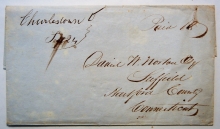 Charlestown
Paid
Daniel W. Norton Esq
Suffield
Hartford County
Connecticut